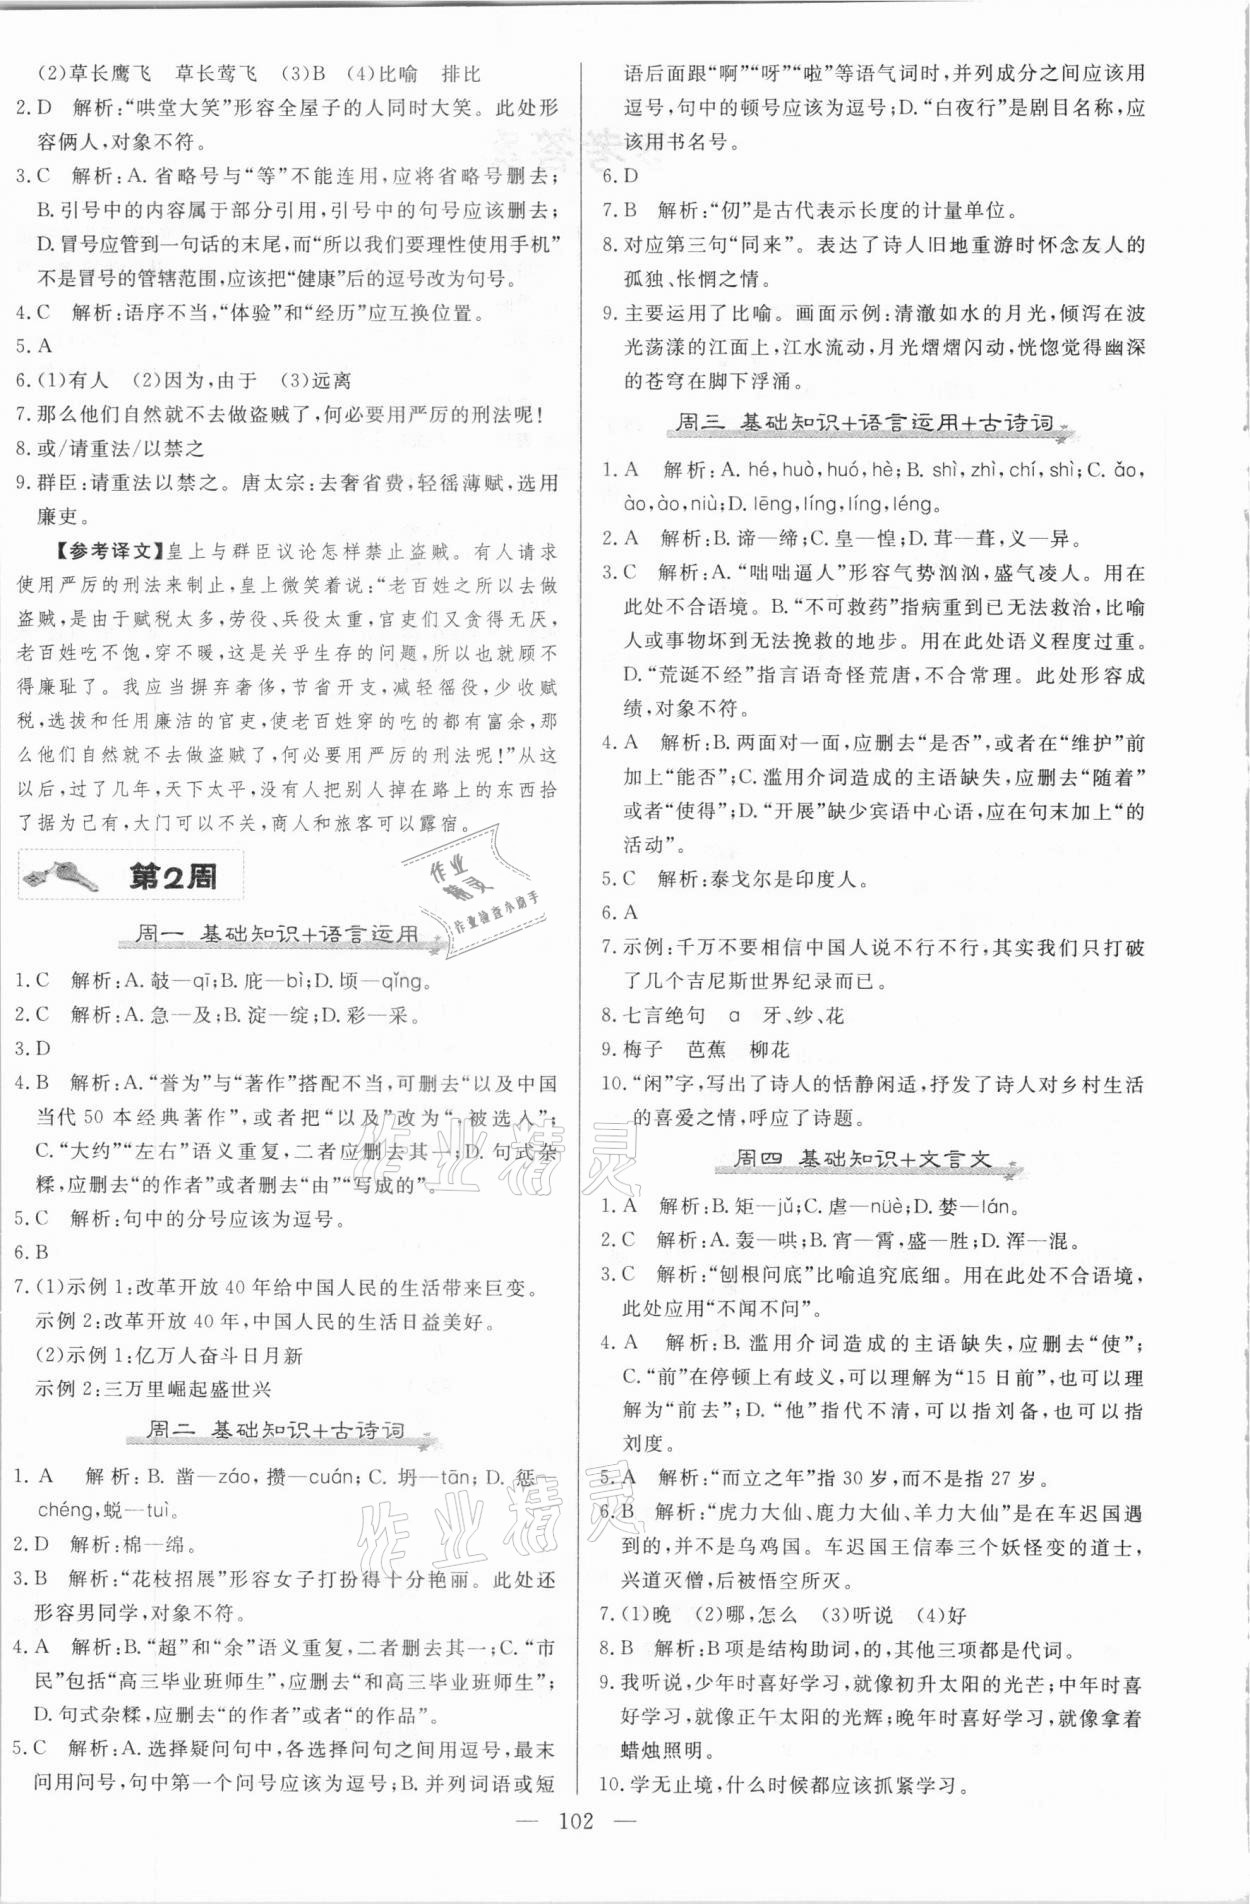 (2)草长鹰飞　草长莺飞　(3)B　(4)比喻　排比
2. D　解析:“哄堂大笑”形容全屋子的人同时大笑。此处形
容俩人,对象不符。
3. C　解析:A. 省略号与“等”不能连用,应将省略号删去;
B. 引号中的内容属于部分引用,引号中的句号应该删去;
D. 冒号应管到一句话的末尾,而“所以我们要理性使用手机”
不是冒号的管辖范围,应该把“健康”后的逗号改为句号。
4. C　解析:语序不当,“体验”和“经历”应互换位置。
5. A
6. (1)有人　(2)因为,由于　(3)远离
7. 那么他们自然就不去做盗贼了,何必要用严厉的刑法呢!
8. 或/请重法/以禁之
9. 群臣:请重法以禁之。唐太宗:去奢省费,轻徭薄赋,选用
廉吏。
【参考译文】皇上与群臣议论怎样禁止盗贼。有人请求
使用严厉的刑法来制止,皇上微笑着说:“老百姓之所以去做
盗贼,是由于赋税太多,劳役、兵役太重,官吏们又贪得无厌,
老百姓吃不饱,穿不暖,这是关乎生存的问题,所以也就顾不
得廉耻了。我应当摒弃奢侈,节省开支,减轻徭役,少收赋
税,选拔和任用廉洁的官吏,使老百姓穿的吃的都有富余,那
么他们自然就不去做盗贼了,何必要用严厉的刑法呢!”从这
以后,过了几年,天下太平,没有人把别人掉在路上的东西拾
了据为己有,大门可以不关,商人和旅客可以露宿。
第2周
周一 基础知识+语言运用
1. C　解析:A. 攲—qī;B. 庇—bì;D. 顷—qǐng。
2. C　解析:A. 急—及;B. 淀—绽;D. 彩—采。
3. D
4. B　解析:A. “誉为”与“著作”搭配不当,可删去“以及中国
当代 50 本经典著作”,或者把“以及”改为“,被选入”;
C. “大约”“左右”语义重复,二者应删去其一;D. 句式杂
糅,应删去“的作者”或者删去“由”“写成的”。
5. C　解析:句中的分号应该为逗号。
6. B
7. (1)示例 1:改革开放 40 年给中国人民的生活带来巨变。
示例 2:改革开放 40 年,中国人民的生活日益美好。
(2)示例 1:亿万人奋斗日月新
示例 2:三万里崛起盛世兴
周二 基础知识+古诗词
1. A　解析:B. 凿—záo,攒—cuán;C. 坍—tān;D. 惩—
chéng,蜕—tuì。
2. D　解析:棉—绵。
3. B　解析:“花枝招展”形容女子打扮得十分艳丽。此处还
形容男同学,对象不符。
4. A　解析:B. “超”和“余”语义重复,二者删去其一;C. “市
民”包括“高三毕业班师生”,应删去“和高三毕业班师生”;
D. 句式杂糅,应删去“的作者”或者“的作品”。
5. C　解析:A. 选择疑问句中,各选择问句之间用逗号,最末
问用问号,句中第一个问号应该为逗号;B. 并列词语或短
语后面跟“啊”“呀”“啦”等语气词时,并列成分之间应该用
逗号,句中的顿号应该为逗号;D. “白夜行”是剧目名称,应
该用书名号。
6. D
7. B　解析:“仞”是古代表示长度的计量单位。
8. 对应第三句“同来”。表达了诗人旧地重游时怀念友人的
孤独、怅惘之情。
9. 主要运用了比喻。画面示例:清澈如水的月光,倾泻在波
光荡漾的江面上,江水流动,月光熠熠闪动,恍惚觉得幽深
的苍穹在脚下浮涌。
周三 基础知识+语言运用+古诗词
1. A　解析:A. hé,huò,huó,hè;B. shì,zhì,chí,shì;C. ǎo,
ào,ào,niù;D. lēng,líng,líng,léng。
2. A　解析:B. 谛—缔;C. 皇—惶;D. 茸—葺,义—异。
3. C　解析:A. “咄咄逼人”形容气势汹汹,盛气凌人。用在
此处不合语境。B. “不可救药”指病重到已无法救治,比喻
人或事物坏到无法挽救的地步。用在此处语义程度过重。
D. “荒诞不经”指言语奇怪荒唐,不合常理。此处形容成
绩,对象不符。
4. A　解析:B. 两面对一面,应删去“是否”,或者在“维护”前
加上“能否”;C. 滥用介词造成的主语缺失,应删去“随着”
或者“使得”;D. “开展”缺少宾语中心语,应在句末加上“的
活动”。
5. C　解析:泰戈尔是印度人。
6. A
7. 示例:千万不要相信中国人说不行不行,其实我们只打破
了几个吉尼斯世界纪录而已。
8. 七言绝句　a　牙、纱、花
9. 梅子　芭蕉　柳花
10. “闲”字,写出了诗人的恬静闲适,抒发了诗人对乡村生活
的喜爱之情,呼应了诗题。
周四 基础知识+文言文
1. A　解析:B. 矩—jǔ;C. 虐—nüè;D. 婪—lán。
2. C　解析:A. 轰—哄;B. 宵—霄,盛—胜;D. 浑—混。
3. C　解析:“刨根问底”比喻追究底细。用在此处不合语境,
此处应用“不闻不问”。
4. A　解析:B. 滥用介词造成的主语缺失,应删去“使”;
C. “前”在停顿上有歧义,可以理解为“15 日前”,也可以理
解为“前去”;D. “他”指代不清,可以指刘备,也可以指
刘度。
5. A　解析:“而立之年”指 30 岁,而不是指 27 岁。
6. B　解析:“虎力大仙、鹿力大仙、羊力大仙”是在车迟国遇
到的,并不是乌鸡国。车迟国王信奉三个妖怪变的道士,
兴道灭僧,后被悟空所灭。
7. (1)晚　(2)哪,怎么　(3)听说　(4)好
8. B　解析:B 项是结构助词,的,其他三项都是代词。
9. 我听说,少年时喜好学习,就像初升太阳的光芒;中年时喜
好学习,就像正午太阳的光辉;晚年时喜好学习,就像拿着
蜡烛照明。
10. 学无止境,什么时候都应该抓紧学习。
— 102 —
作业
精灵
作业检查小助手
作业精灵
作业精灵